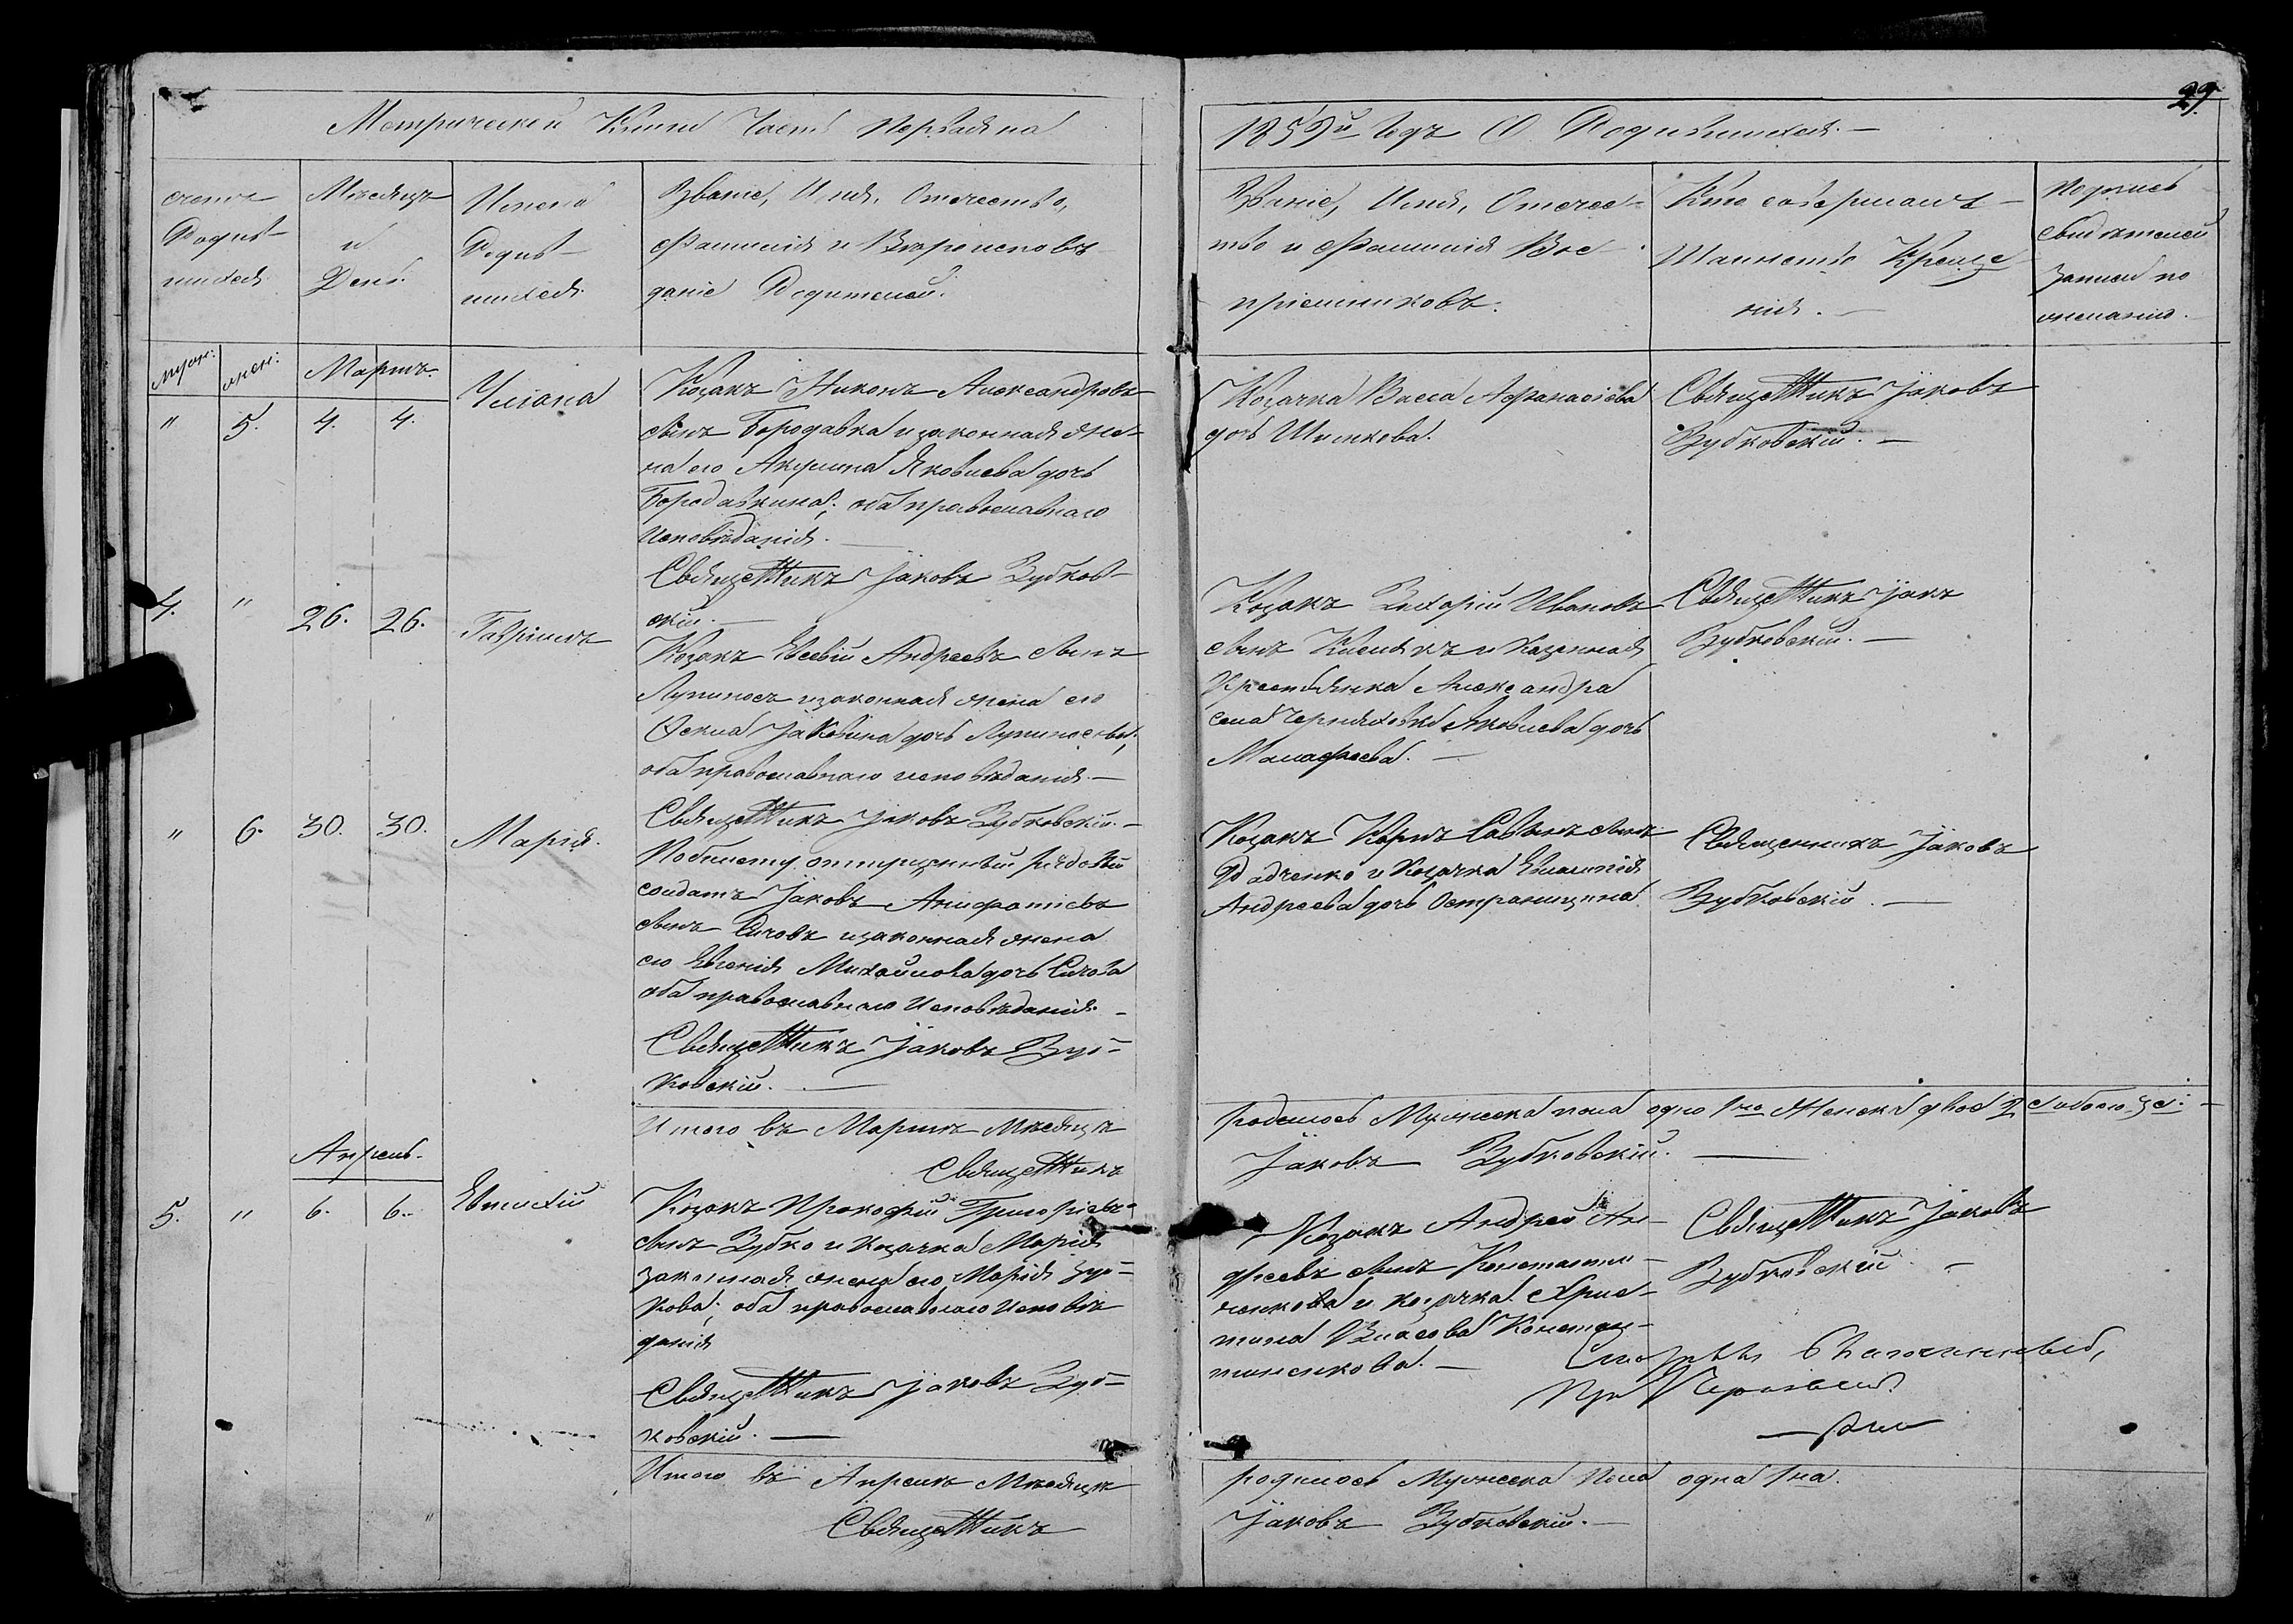 29.
Метрической Книги Часть первая на
1859й Годъ О Родившихся. —
счетъ Родив-
шихся
Мѣсяцъ
и
День.
Имена
Родив-
шихся.
Званіе, Имя, Отечество,
Фамилія и Вѣроисповѣ-
даніе Родителей.
Званіе, Имя, Отечес-
тво и Фамилія Вос-
пріемниковъ.
Кто совершалъ
Таинство Креще
нія. —
Подпись
свидѣтелей
записи по
желанію.
муж: жен:
Мартъ.
" 5. 4. 4.
Козакъ Никонъ Александровъ
сынъ Бородавка и законная же-
на его Акулина Яковлева дочь
Бородавкина; оба православнаго
Исповѣданія. —
Священникъ Іаковъ Зубков-
скій. —
Козачка Васса Афанасіева
дочь Шишкова.
Священникъ Іаковъ
Зубковскій. —
4. " 26. 26.
Гавріилъ
Козакъ Евсевій Андреевъ сынъ
Лупиносъ и законная жена его
дочь Лупиносова;
оба православнаго исповѣданія. —
Священникъ Іаковъ Зубковскій. —
Козакъ Ивановъ
сынъ и казенная
крестьянка Александра
села Яковлева дочь
Священникъ Іаковъ
Зубковскій. —
" 6. 30. 30.
Марія.
По билету отпущенный рядовый
солдатъ Іаковъ
сынъ Сичовъ и законная жена
его Евгенія Михайлова дочь Сичова
оба православнаго Исповѣданія. —
Священникъ Іаковъ Зуб-
ковскій. —
Козакъ Карпъ Саввинъ сынъ
Радченко и Козачка Евлампія
Андреева дочь Остраницина
Священникъ Іаковъ
Зубковскій. —
Итого въ Мартѣ Мѣсяцѣ
родилось Мужеска пола одно 1но Женска двое 2
Священникъ
Іаковъ Зубковскій. —
Апрель.
5. " 6. 6.
Евтихій
Козакъ Прокофій Григорьевъ
сынъ Зубко и Козачка Марія
законная жена его Марія Зуб-
кова; оба православнаго Исповѣ
данія
Священникъ Іаковъ Зуб-
ковскій. —
Козакъ Андрей Ан-
дреевъ сынъ Константи-
ненкова и козачка Хрис-
тина Власова Констан-
тиненкова. —
Священникъ Іаковъ
Зубковскій —
Итого въ Апрелѣ Мѣсяцѣ
родилось Мужеска Пола одна 1на.
Священникъ
Іаковъ Зубковскій. —